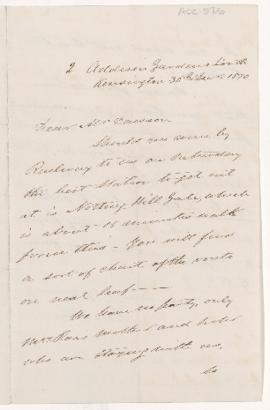 2 Addison Gardens South
Kensington 30th 1870
Dear Mr
Should you come by
Railway to us on Saturday
the best Station to get out
at is Notting Hill Gate, which
is about 15 minutes walk
from this - You will find
a sort of chart of the route
on next leaf - -
We have no party, only
Mrs mother and sister
who are staying with us.
So